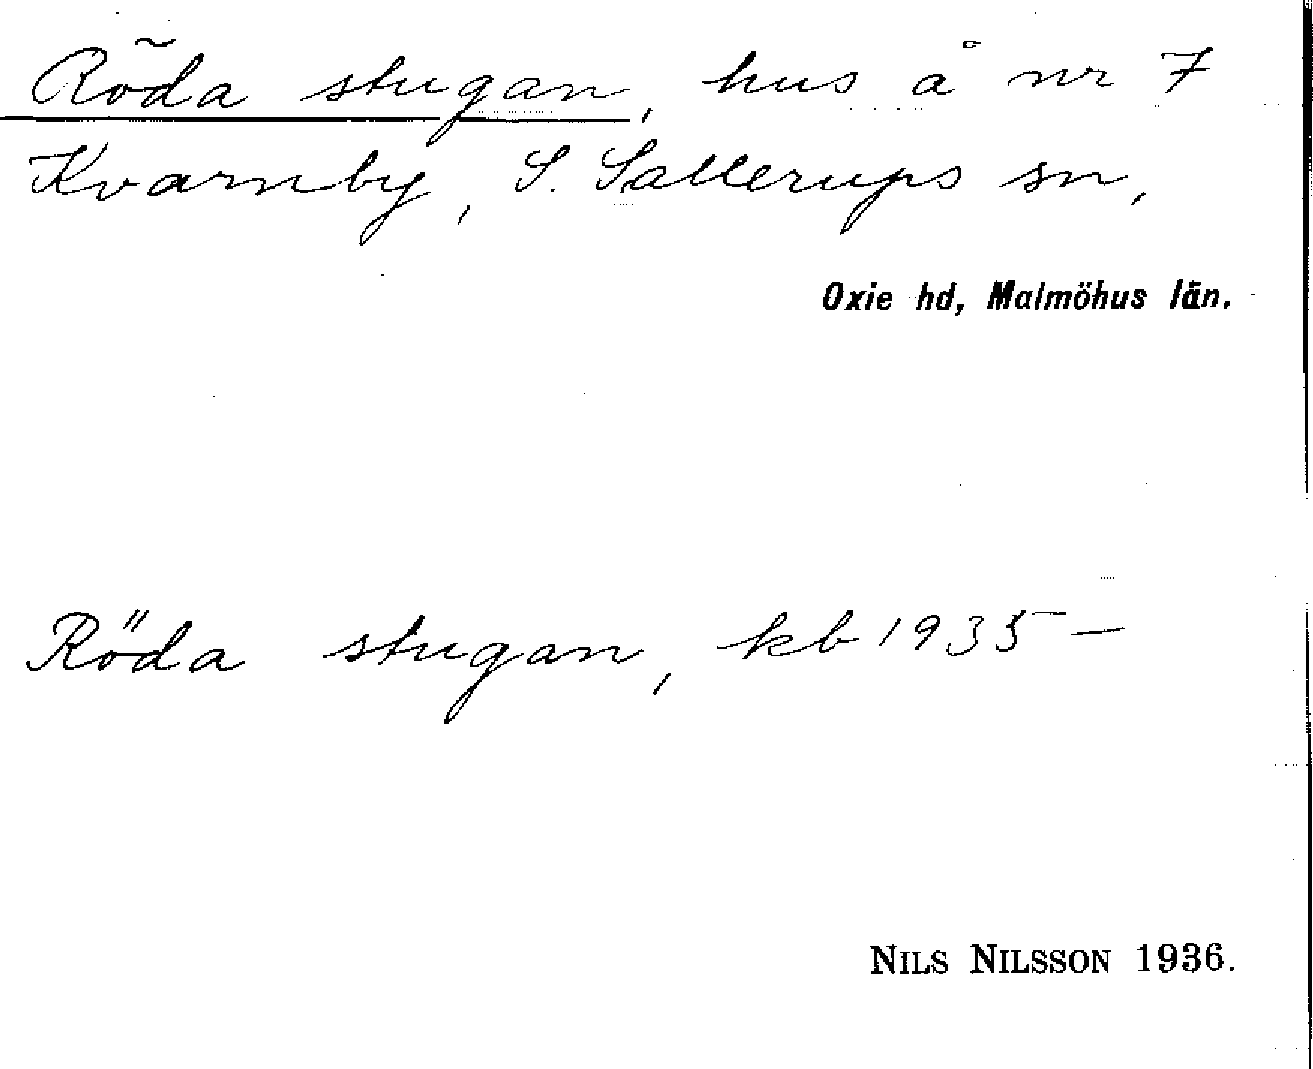 Röda stugan, hus å nr 7
Kvarnby, S. Sallerups sn,
Oxie hd, Malmöhus län.
Röda stugan, kb 1935 —
NILS NILSSON 1936.